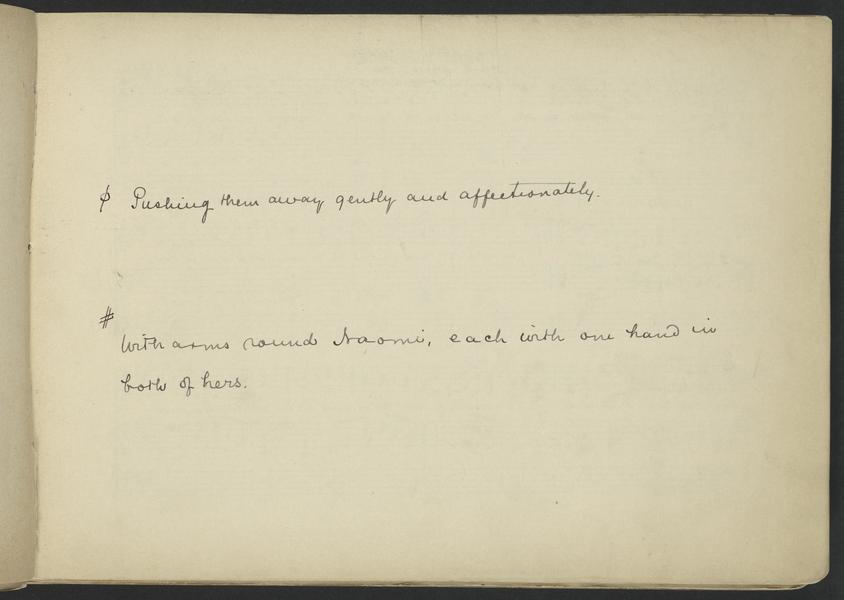 ϕ Pushing them away gently and affectionately.
# With arms round Naomi, each with one hand in
both of hers.